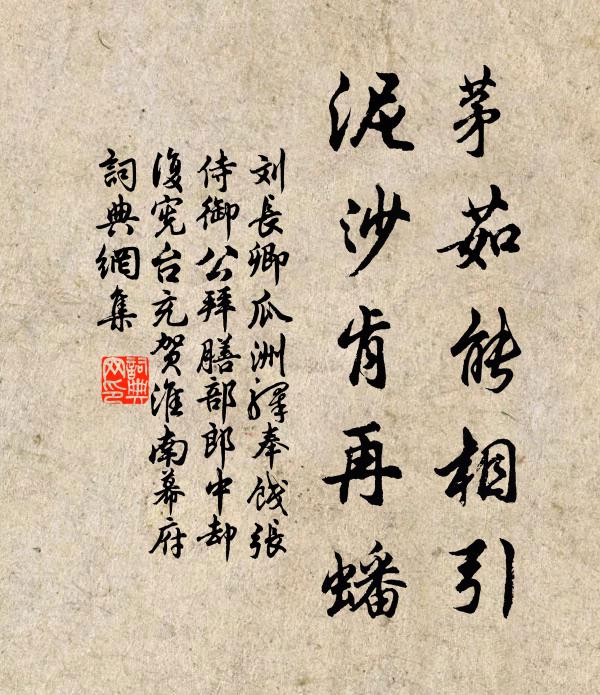 茅茹能相引
泥沙肯再蟠
刘長卿瓜洲驛奉餞張
侍御公拜膳部郎中却
復宪台充贺淮南幕府
詞典網集
詞典
网印